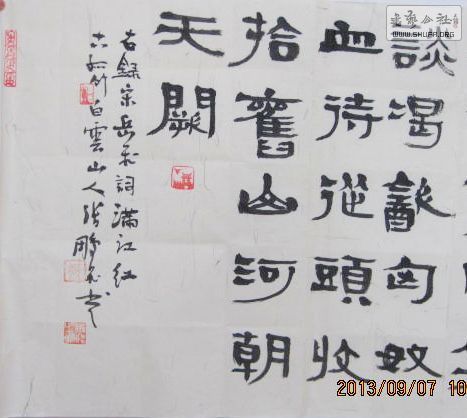 談渴飲匈奴
血待從頭收
拾舊山河朝
天闕
右錄宋岳飛詞滿江紅
古孤竹白雲山人張鵬飛書
书艺公社
WWW.SHUFA.ORG
2013/09/07 10